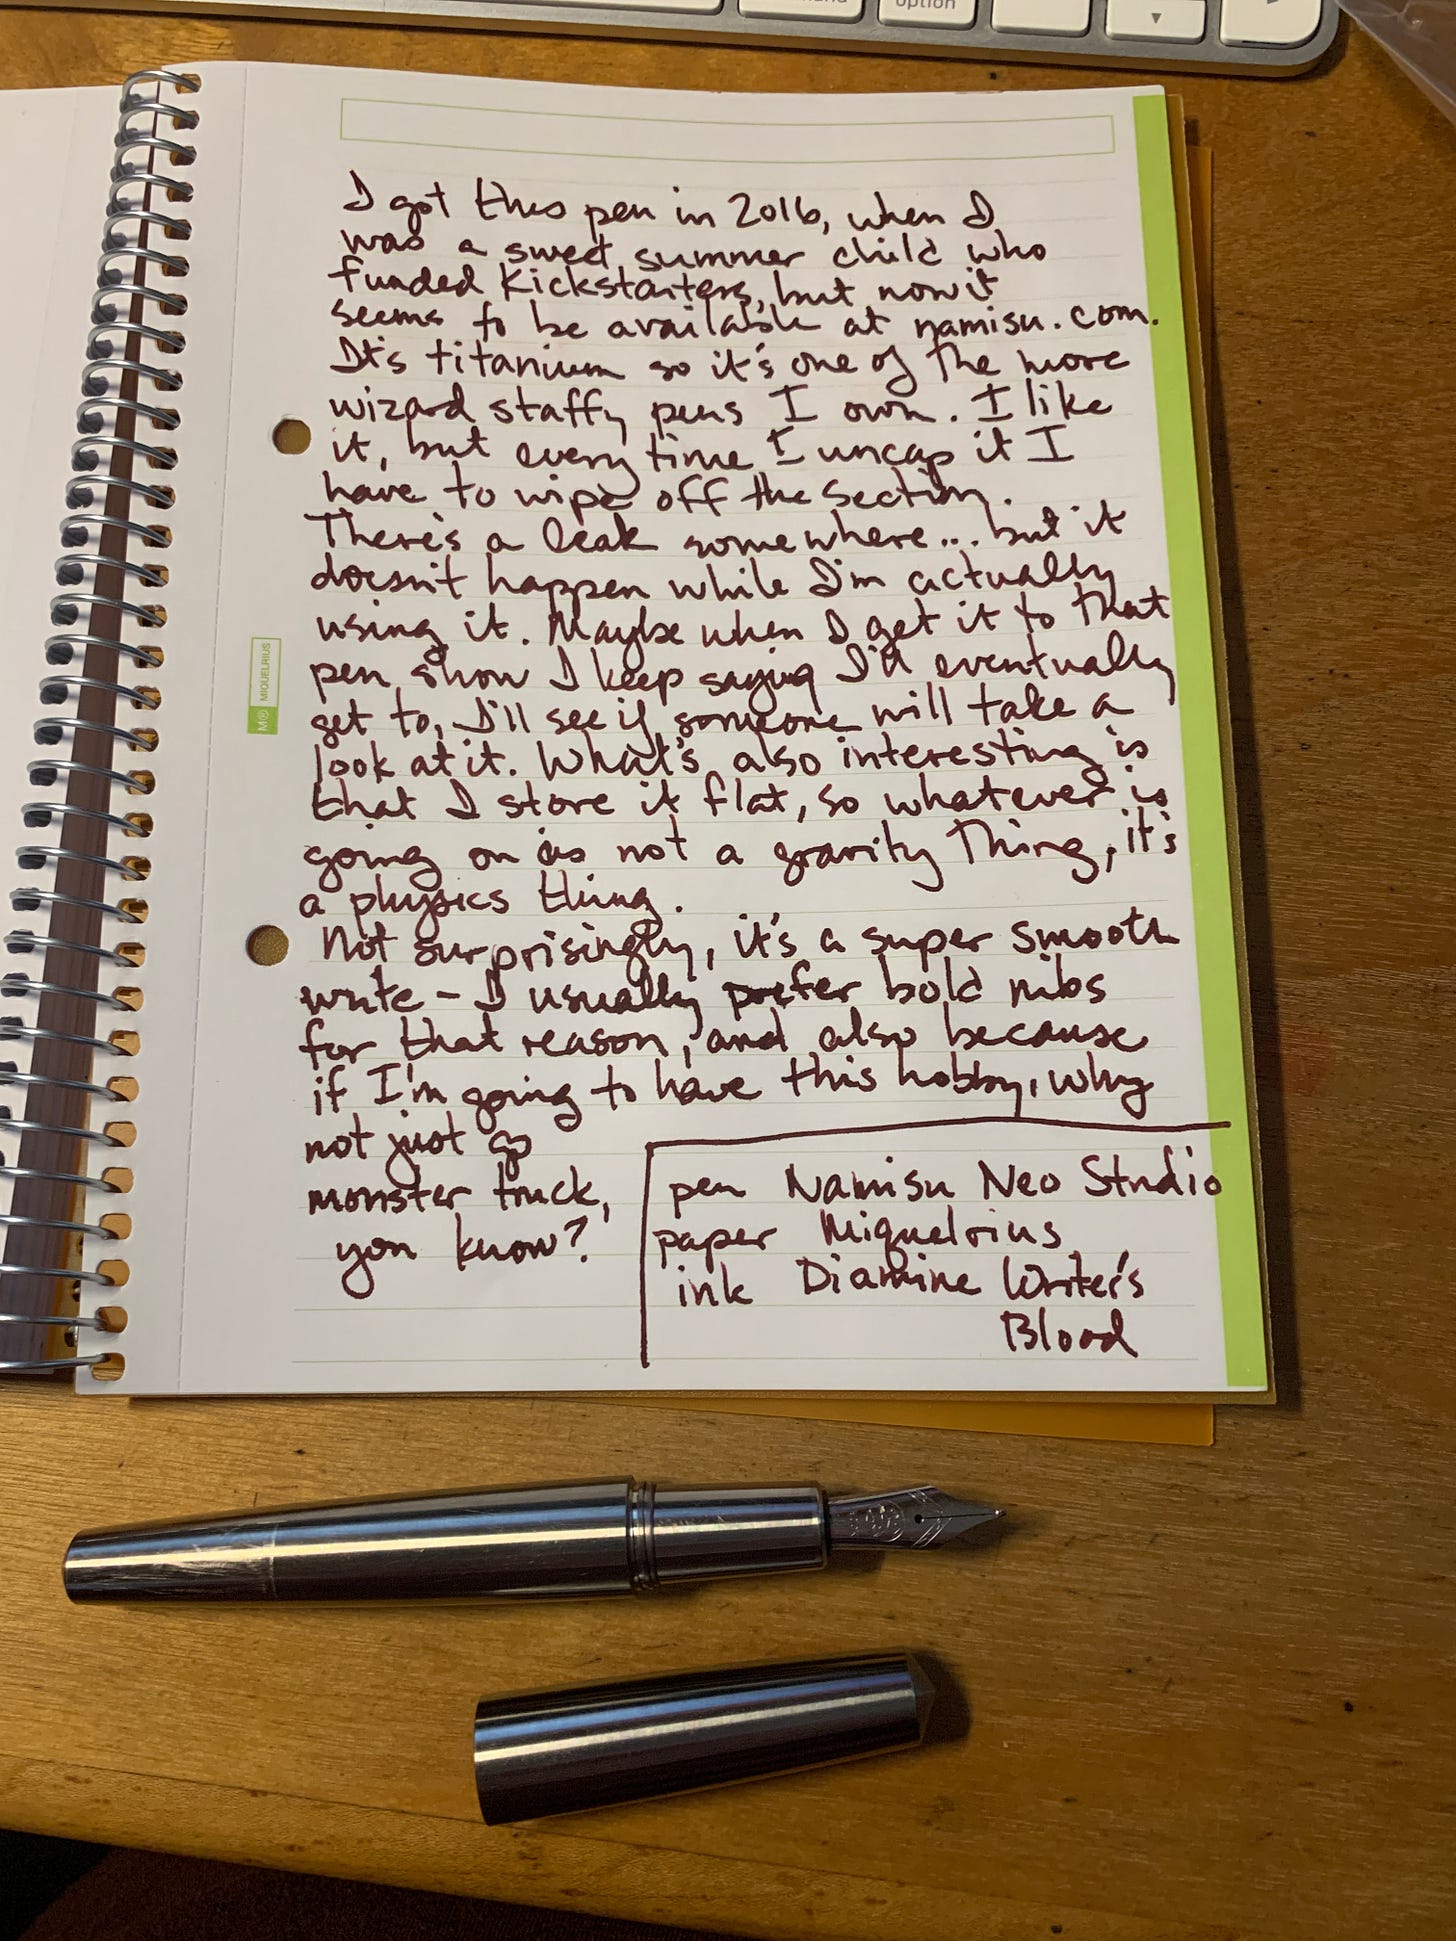 option
I got this pen in 2016, when I
was a sweet summer child who
funded Kickstarters, but now it
seems to be available at namisu.com.
It's titanium so it's one of the more
wizard staffy pens I own. I like
it, but every time I uncap it I
have to wipe off the section.
There's a leak somewhere... but it
doesn't happen while I'm actually
using it. Maybe when I get it to that
pen show I keep saying I'll eventually
get to, I'll see if someone will take a
look at it. What's also interesting is
that I store it flat, so whatever is
going on is not a gravity thing, it's
a physics thing.
Not surprisingly, it's a super smooth
write - I usually prefer bold nibs
for that reason, and also because
if I'm going to have this hobby, why
not just go
monster truck,
you know?
pen Namisu Neo Studio
paper Miquelrius
ink Diamine Writer's
Blood
MIQUELRIUS